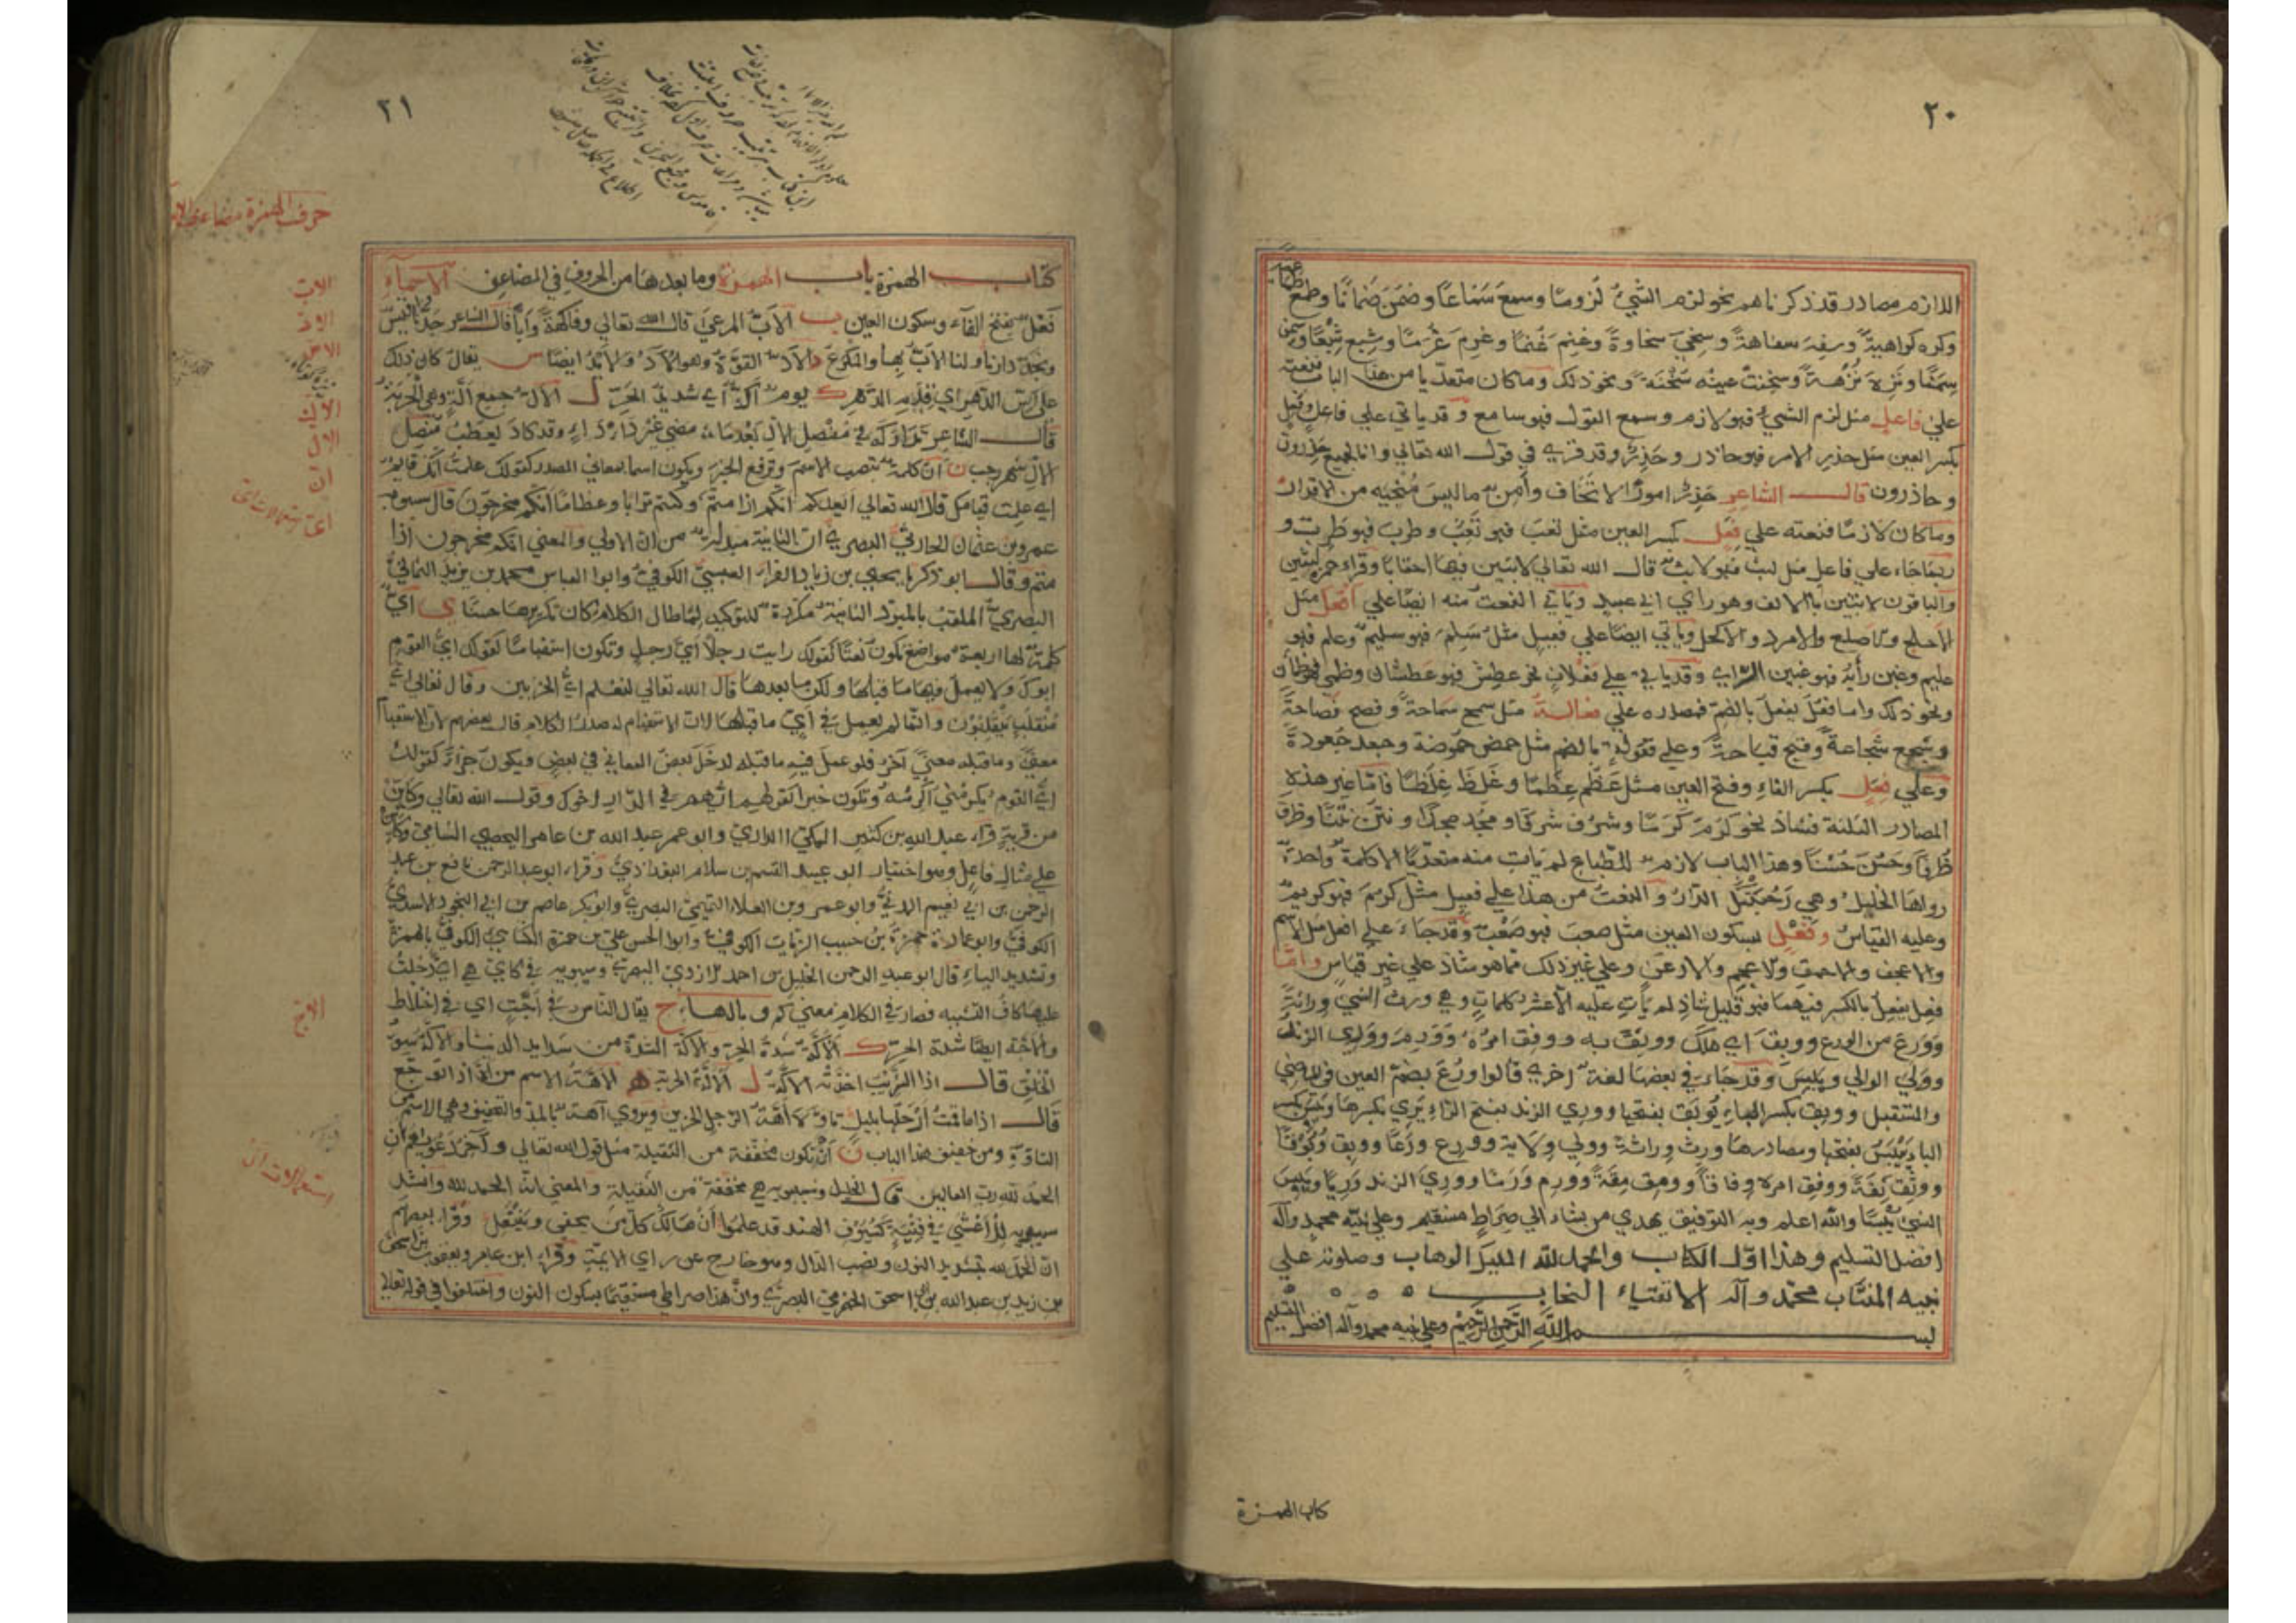 ٢٠
اللازم مصادر قد ذكرناهم نحو لزم الشيُ لزومًا وسمع سَمَاعًا وضمن ضمانًا وطمع طمعا
وكره كراهيةً وسفِهَ سفاهةً وسخِيَ سخاوةً وغنِم غُنمًا وغرِم غُرمًا وشبع شِبَعًا وسمن
سِمَنًا ونزِهَ نُزْهةً وسخِنتْ عينه سُخْنَةً ونحو ذلك وما كان متعدّيا من هذا الباب فنعته
علي فاعل مثل لزم الشيُ فهو لازم وسمع القول فهو سامع وقد ياتي علي فاعل وفَعِل
بكسر العين مثل حذر الامر فهو حاذر وحَذِرٌ وقد قرئ في قول الله تعالي وانا لجميع حذرون
وحاذرون قال الشاعر حَذِرٌ امورًا لا تَخاف وآمن ما ليس مُنْجيه من الاقدار
وما كان لازمًا فنعته علي فَعِل بكسر العين مثل تعب فهو تَعِبٌ وطرب فهو طَرِبٌ و
ربما جاء علي فاعل مثل لبث فهو لابث قال الله تعالي لابثين فيها احقابًا وقراء حمزة لبثين
والباقون لابثين بالالف وهو راي ابي عبيد وياتي النعت منه ايضًا علي افعل مثل
الاجلح والاصلع والامرد والاكحل وياتي ايضًا علي فعيل مثل سَلِمَ فهو سليم وعلم فهو
عليم وغبن رأيُه فهو غبين الراي وقد ياتي علي فعلان نحو عطِش فهو عطشان وظمي فهو ظمأن
ونحو ذلك واما فعُل يفعُل بالضم فمصدره علي فعالة مثل سمح سماحةً وفصح فصاحةً
وشجع شجاعةً وقبح قباحةً وعلي فعُولةٍ بالضم مثل حمض حموضة وجعد جُعودةً
وعلي فِعَل بكسر الفاءِ وفتح العين مثل عَظُم عِظَمًا وغَلُظ غِلَظًا فامّا غير هذه
المصادر الثلثة فشاذ نحو كرُمَ كَرَمًا وشرُف شرفًا ومجُد مجدًا ونتُن نَتنًا وظرف
ظُرفًا وحَسُنَ حُسْنًا وهذا الباب لازم للطّباع لم يَاتِ منه متعدّيًا الا كلمة واحدة
رواها الخليل وهي رَحُبَتْكَ الدّارُ والنعتُ من هذا علي فعيل مثل كَرُمَ فهو كريم
وعليه القياسُ وفَعْلٍ بسكون العين مثل صعب فهو صَعْبٌ وقد جاءَ علي افعل مثل الاسم
والاعجف والاحمق والاعجم والارعن وعلي غير ذلك مما هو شاذ علي غير قياس وامّا
فعِل يفعِل بالكسر فيهما فهو قليل شاذ لم يَأتِ عليه الّا عشر كلماتٍ وهي ورث الشيَ وِراثةً
وَوَرِعَ من الورع ووبِقَ اي هلك ووثِقَ به ووفِق امرُه وَوَرِمَ وَوَرِي الزند
ووَلِيَ الوالي ويبِسَ وقد جاءَ في بعضها لغة اخرى قالوا ورُعَ بضم العين في الماضي
والمستقبل ووبِق بكسر الباء يُوبَق بفتحها ووري الزند بفتح الراءِ يَرِي بكسرها ويَبِسَ بكسر
الباءِ يَيْبَسُ بفتحها ومصادرها ورث وراثةً وولي وِلايةً وورع وَرَعًا ووبق وُبُوقًا
ووثِق ثِقةً ووفِق امره وِفاقًا وومِق مِقَةً وورِم وَرَمًا ووَرِيَ الزند وَرِيًا ويَبِسَ
الشيُ يُبْسًا والله اعلم وبه التوفيق يهدي من يشاء الي صِراطٍ مستقيم وعلي نبيّه محمد وآله
افضل التسليم وهذا اوّل الكتاب والحمد لله المليك الوهاب وصلوته علي
نبيه المنتاب محمّد وآله الاتقياء النجاب
بسم اللّه الرّحمن الرّحيم وعلي نبيه محمد وآله افضل التسليم
كتاب الهمزة
٢١
حرف الهمزة مضاعف
كتاب الهمزة باب الهمزة وما بعدها من الحروف في المضاعف الاسماء
فَعْل بفتح الفآء وسكون العين ب الأبّ المرعَي قال الله تعالي وفاكهةً وأبًّا قال الشاعر جدّنا قيس
ونجدٌ دارنا ولنا الأبّ بها والمكرع د الأدّ القوّة وهو الأدّ والأيد ايضًا س يقال كان ذلك
علي اسّ الدّهر اي قِدَم الدّهر ك يومٌ أكٌّ اي شديد الحرّ ل الألّ جميع ألّةٍ وهي الحربة
قال الشاعر تداركه في منصل الالّ بعدما مضي غير دأداءٍ وقد كاد يعطب منصل
الالّ شهر رجب ن أنّ كلمة تنصب الاسم وترفع الخبر ويكون اسمًا بمعاني المصدر كقولك علمتُ أنّك قايم
اي علمت قيامك قال الله تعالي أيعدكم أنّكم اذا متّم وكنتم ترابا وعظامًا أنّكم مخرجون قال سيبويه
عمرو بن عثمان الحارثي البصري أنّ الثانية مبدلة من أنّ الاولي والمعني انّكم مخرجون اذا
متم وقال ابو زكريا يحيي بن زياد الفراء العبسيّ الكوفيّ وابو العباس محمد بن يزيد الثماليّ
البصريّ الملقب بالمبرّد الثانية مكرّرة للتوكيد لمّا طال الكلام كان تكريرها حسنًا ي أيّ
كلمة لها اربعة مواضع تكون نعتًا كقولك رايت رجلًا أيّ رجل وتكون استفهامًا كقولك ايّ القوم
ابوك ولا يعمل فيها ما قبلها ولكن ما بعدها قال الله تعالي لنعلم ايّ الحزبين وقال تعالي ايّ
مُنْقَلَبٍ يَنْقَلِبُون وانّما لم يعمل في ايّ ما قبلها لان الاستفهام له صدر الكلام قال بعضهم لان الاستفهام
معنيً وما قبله معنيً آخر فلو عمل فيه ما قبله لدخل بعض المعاني في بعض ويكون جزاءً كقولك
ايُّ القوم يُكرمْني أُكْرِمْه وتكون خبرا كقولهم ايّهم في الدّار اخوك وقول الله تعالي وكأيّن
من قريةٍ قراء عبد الله بن كثير المكي الداري وابو عمر عبد الله بن عامر اليحصبي الشامي وكاين
علي مثال فاعل وهو اختيار ابو عبيد القسم بن سلام البغداديّ وقراء ابو عبد الرحمن نافع بن عبد
الرحمن بن ابي نعيم المدنيّ وابو عمرو بن العلاء التميميّ البصريّ وابو بكر عاصم بن ابي النجود الاسديّ
الكوفيّ وابو عمارة حمزة بن حبيب الزيّات الكوفيّ وابو الحسن علي بن حمزة الكسايي الكوفيّ بالهمزة
وتشديد الياء قال ابو عبد الرحمن الخليل بن احمد الازدي البصري وسيبويه في كايّن هي ايّ دخلت
عليها كاف التشبيه فصار في الكلام معني كم و بالهاء ج يقال الناس في أجّةٍ اي في اختلاط
والاجّة ايضًا شدة الحرّ ك الأكّة شدّة الحرّ والاكّة الشدّة من شدايد الدنيا والاكّة سوء
الخلق قال اذا الشريب اخذته الاكّة ل الألّة الحربة ه الاهّة الاسم من أهّ اذا توجّع
قال اذا ما قمتُ أرحَلُها بليل تأوّه أهّة الرّجل الحزين ويروي آهة بالمد والتخفيف وهي الاسم من
التاوّه ومن خفيف هذا الباب ن أن تكون مخففة من الثقيلة مثل قول الله تعالي وآخر دعويهم أن
الحمد لله رب العالمين قال الخليل وسيبويه هي مخففة من الثقيلة والمعني انّه الحمد لله وانشد
سيبويه للأعشي في فتيةٍ كسيوف الهند قد علموا أن هالك كلّ من يحفي وينتعل وقراء بعضهم
انّ الحمد لله بتشديد النون ونصب الدال وهو خارج عن راي الايمّة وقراء ابن عامر ويعقوب بن اسحق
بن زيد بن عبد الله بن ابي اسحق الحضرميّ البصريّ وأنْ هذا صراطي مستقيمًا بسكون النون واختلفوا في قوله تعالي
الابّ
الادّ
الاسّ
الاكّ
الالّ
انّ